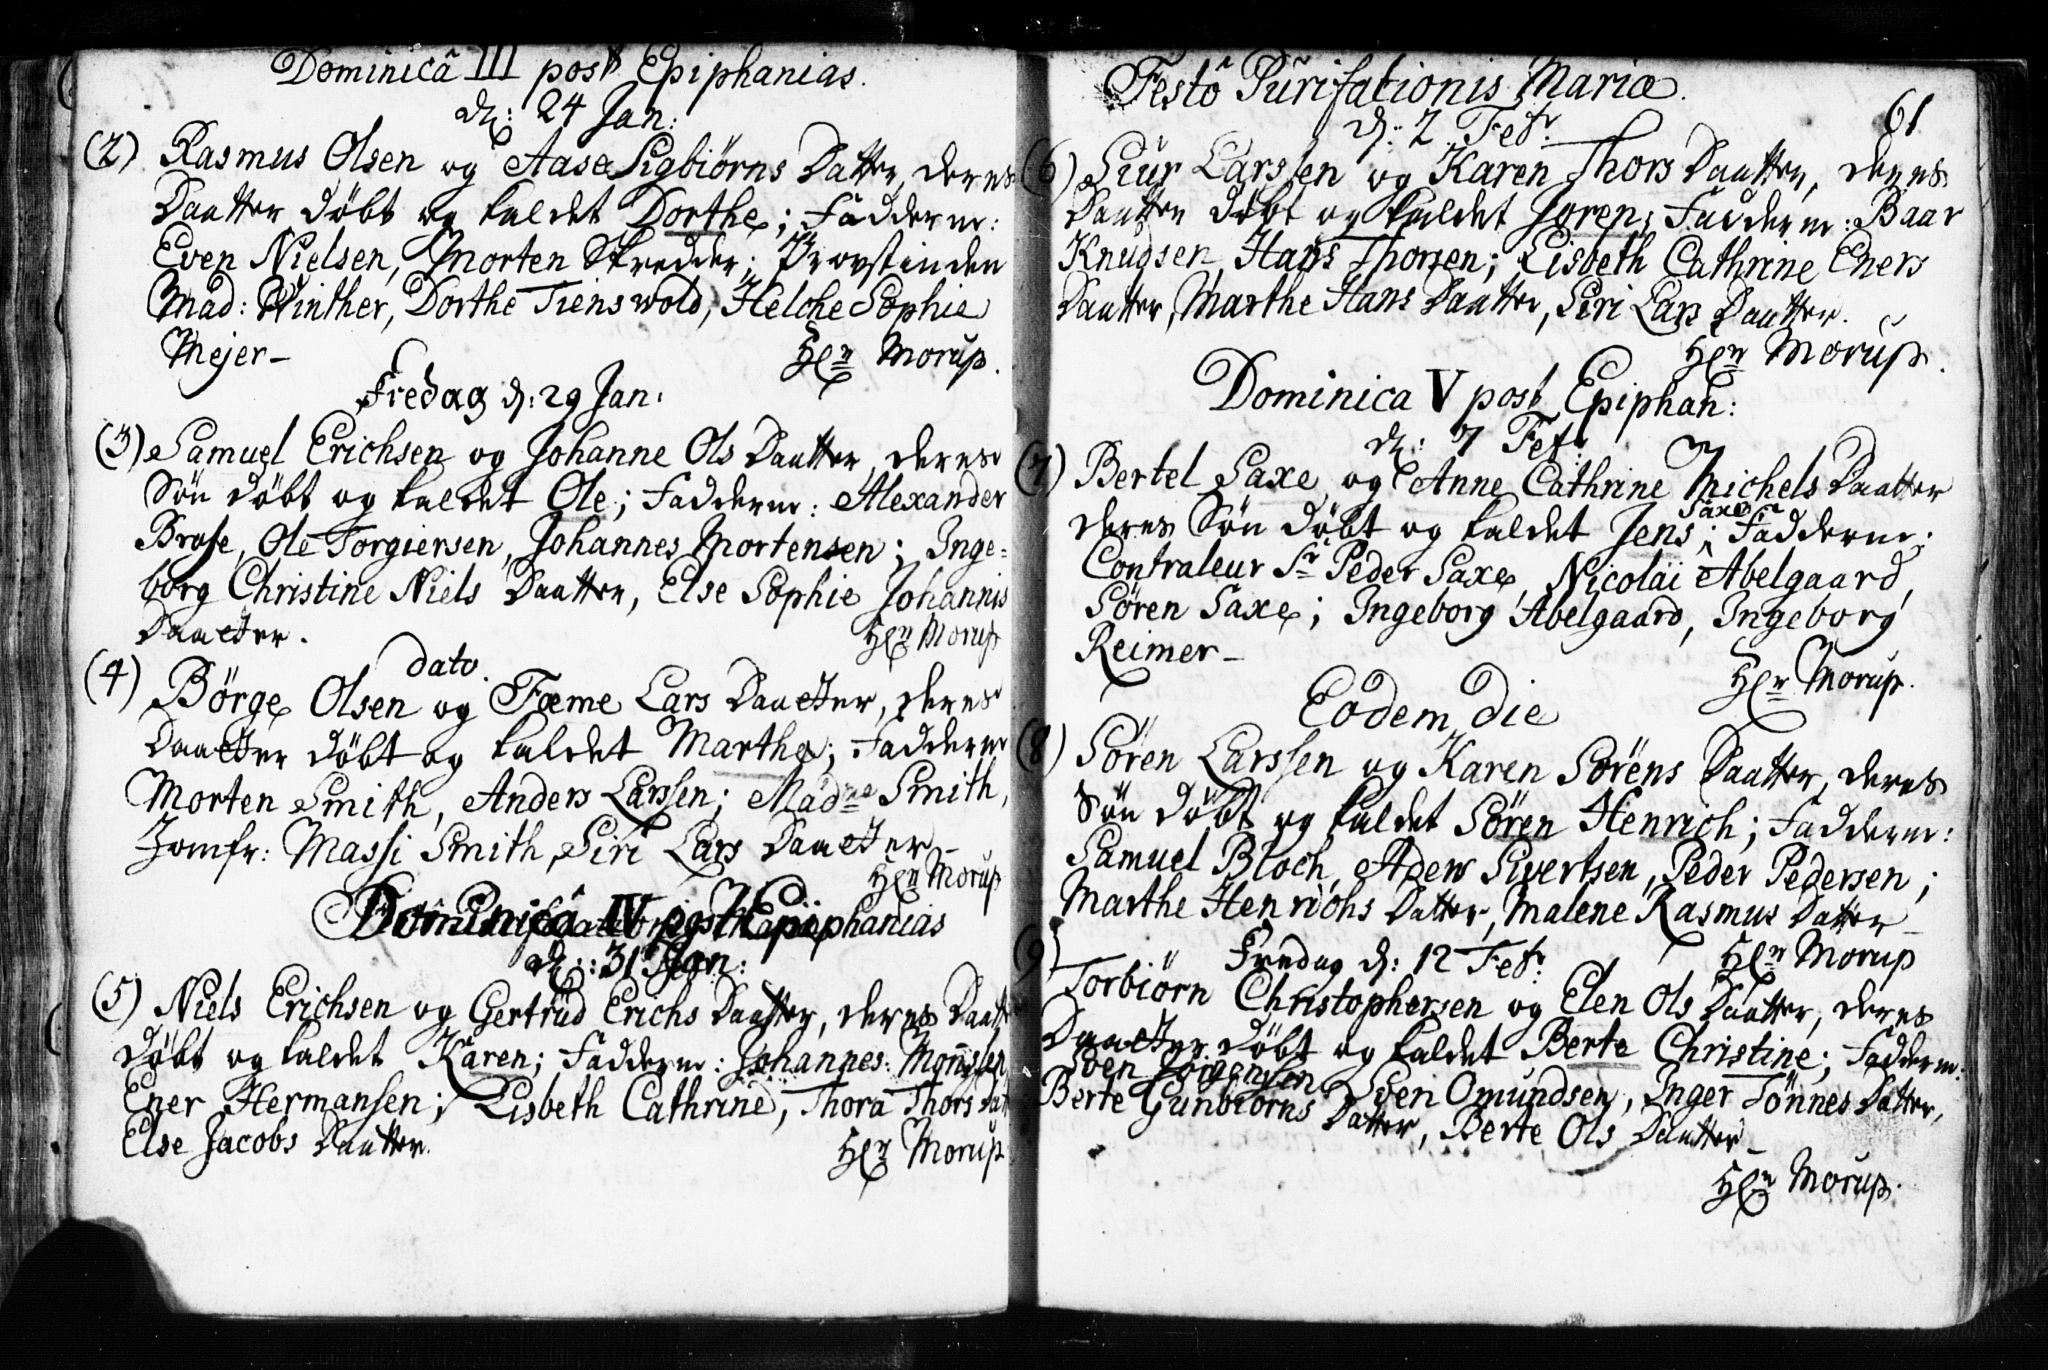 Dominicâ III post Epiphanias.
d: 24 Jan:
(2) Rasmus Olsen og Aase Sigbiørns Datter, deres
Daatter døbt og kaldet Dorthe; Fadderne:
Even Nielsen, Morten Skredder; Provstinden
Mad: Winther, Dorthe Tienswold, Helche Sophie
Mejer-
Hr Morup.
Fredag d: 29 Jan:
(3) Samuel Erichsen og Johanne Ols Daatter, deres
Søn døbt og kaldet Ole; Fadderne: Alexander
Brose, Ole Torgiersen, Johannes Mortensen; Inge=
borg Christine Niels Daatter, Else Sophie Johannis
Daatter.
Hr Morup
dato.
(4) Børge Olsen og Fæme Lars Daatter, deres
Daatter døbt og kaldet Marthe; Fadderne
Morten Smith, Anders Larssen; Madme Smith,
Jomfr: Massi Smith, Siri Lars Daatter-
Hr Morup
Dominicâ IV post Epiphanias
d: 31 Jan:
(5) Niels Erichsen og Gertrud Erichs Daatter, deres Daatt
døbt og kaldet Karen; Fadderne: Johannes Monssen
Ener Hermansen; Lisbeth Cathrine, Thora Thors Dat
Else Jacobs Daatter.
Hr Morup
61
Festo Purifationis Mariæ.
d: 2 Febr:
(6) Siur Larssen og Karen Thors Daatter, deres
Daatter døbt og kaldet Joren; Fadderne: Baar
Knudsen, Hans Thorsen; Lisbeth Cathrine Eners
Daatter, Marthe Hans Daatter, Siri Lars Daatter.
Hr Morup.
Dominica V post Epiphan:
d: 7 Febr:
(7) Bertel Saxe og Anne Cathrine Michels Daatter
deres Søn døbt og kaldet Jens Saxe; Fadderne:
Contraleur Sr Peder Saxe, Nicolai Abelgaard,
Søren Saxe; Ingeborg Abelgaard, Ingeborg
Reimer-
Hr Morup.
Eodem die
(8) Søren Larssen og Karen Sørens Daatter, deres
Søn døbt og kaldet Søren Henrich; Fadderne:
Samuel Bloch, Aders Sivertsen, Peder Pedersen;
Marthe Henrichs Datter, Malene Rasmus Datter-
Hr Morup
Fredag d: 12 Febr:
9) Torbiørn Christophersen og Elen Ols Daatter, deres
Daatter døbt og kaldet Berte Christine; Fadderne:
Soen Jørgensen, Sven Omundsen, Inger Tönnes Datter,
Berte Gunbiørns Datter, Berte Ols Daatter-
Hr Morup.